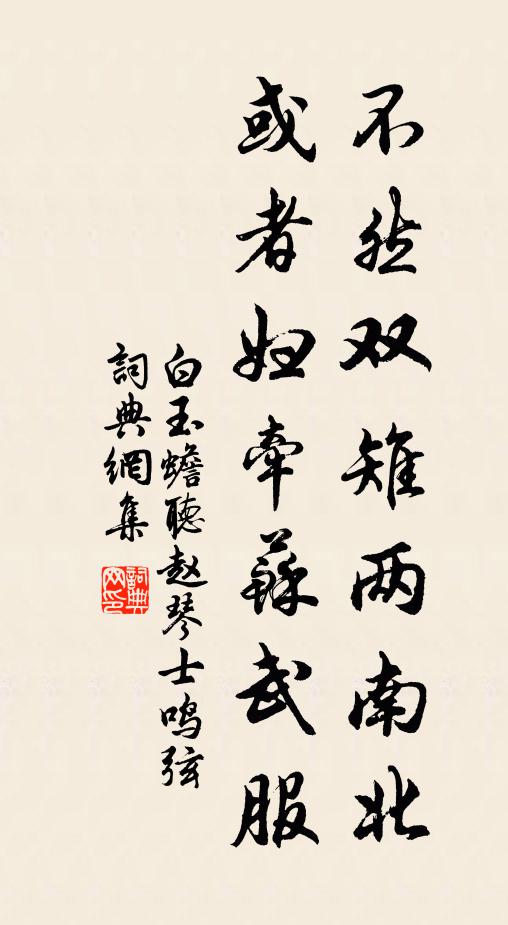 不然双雉两南北
或者妇牵苏武服
白玉蟾聽赵琴士鸣弦
詞典網集
詞典网印